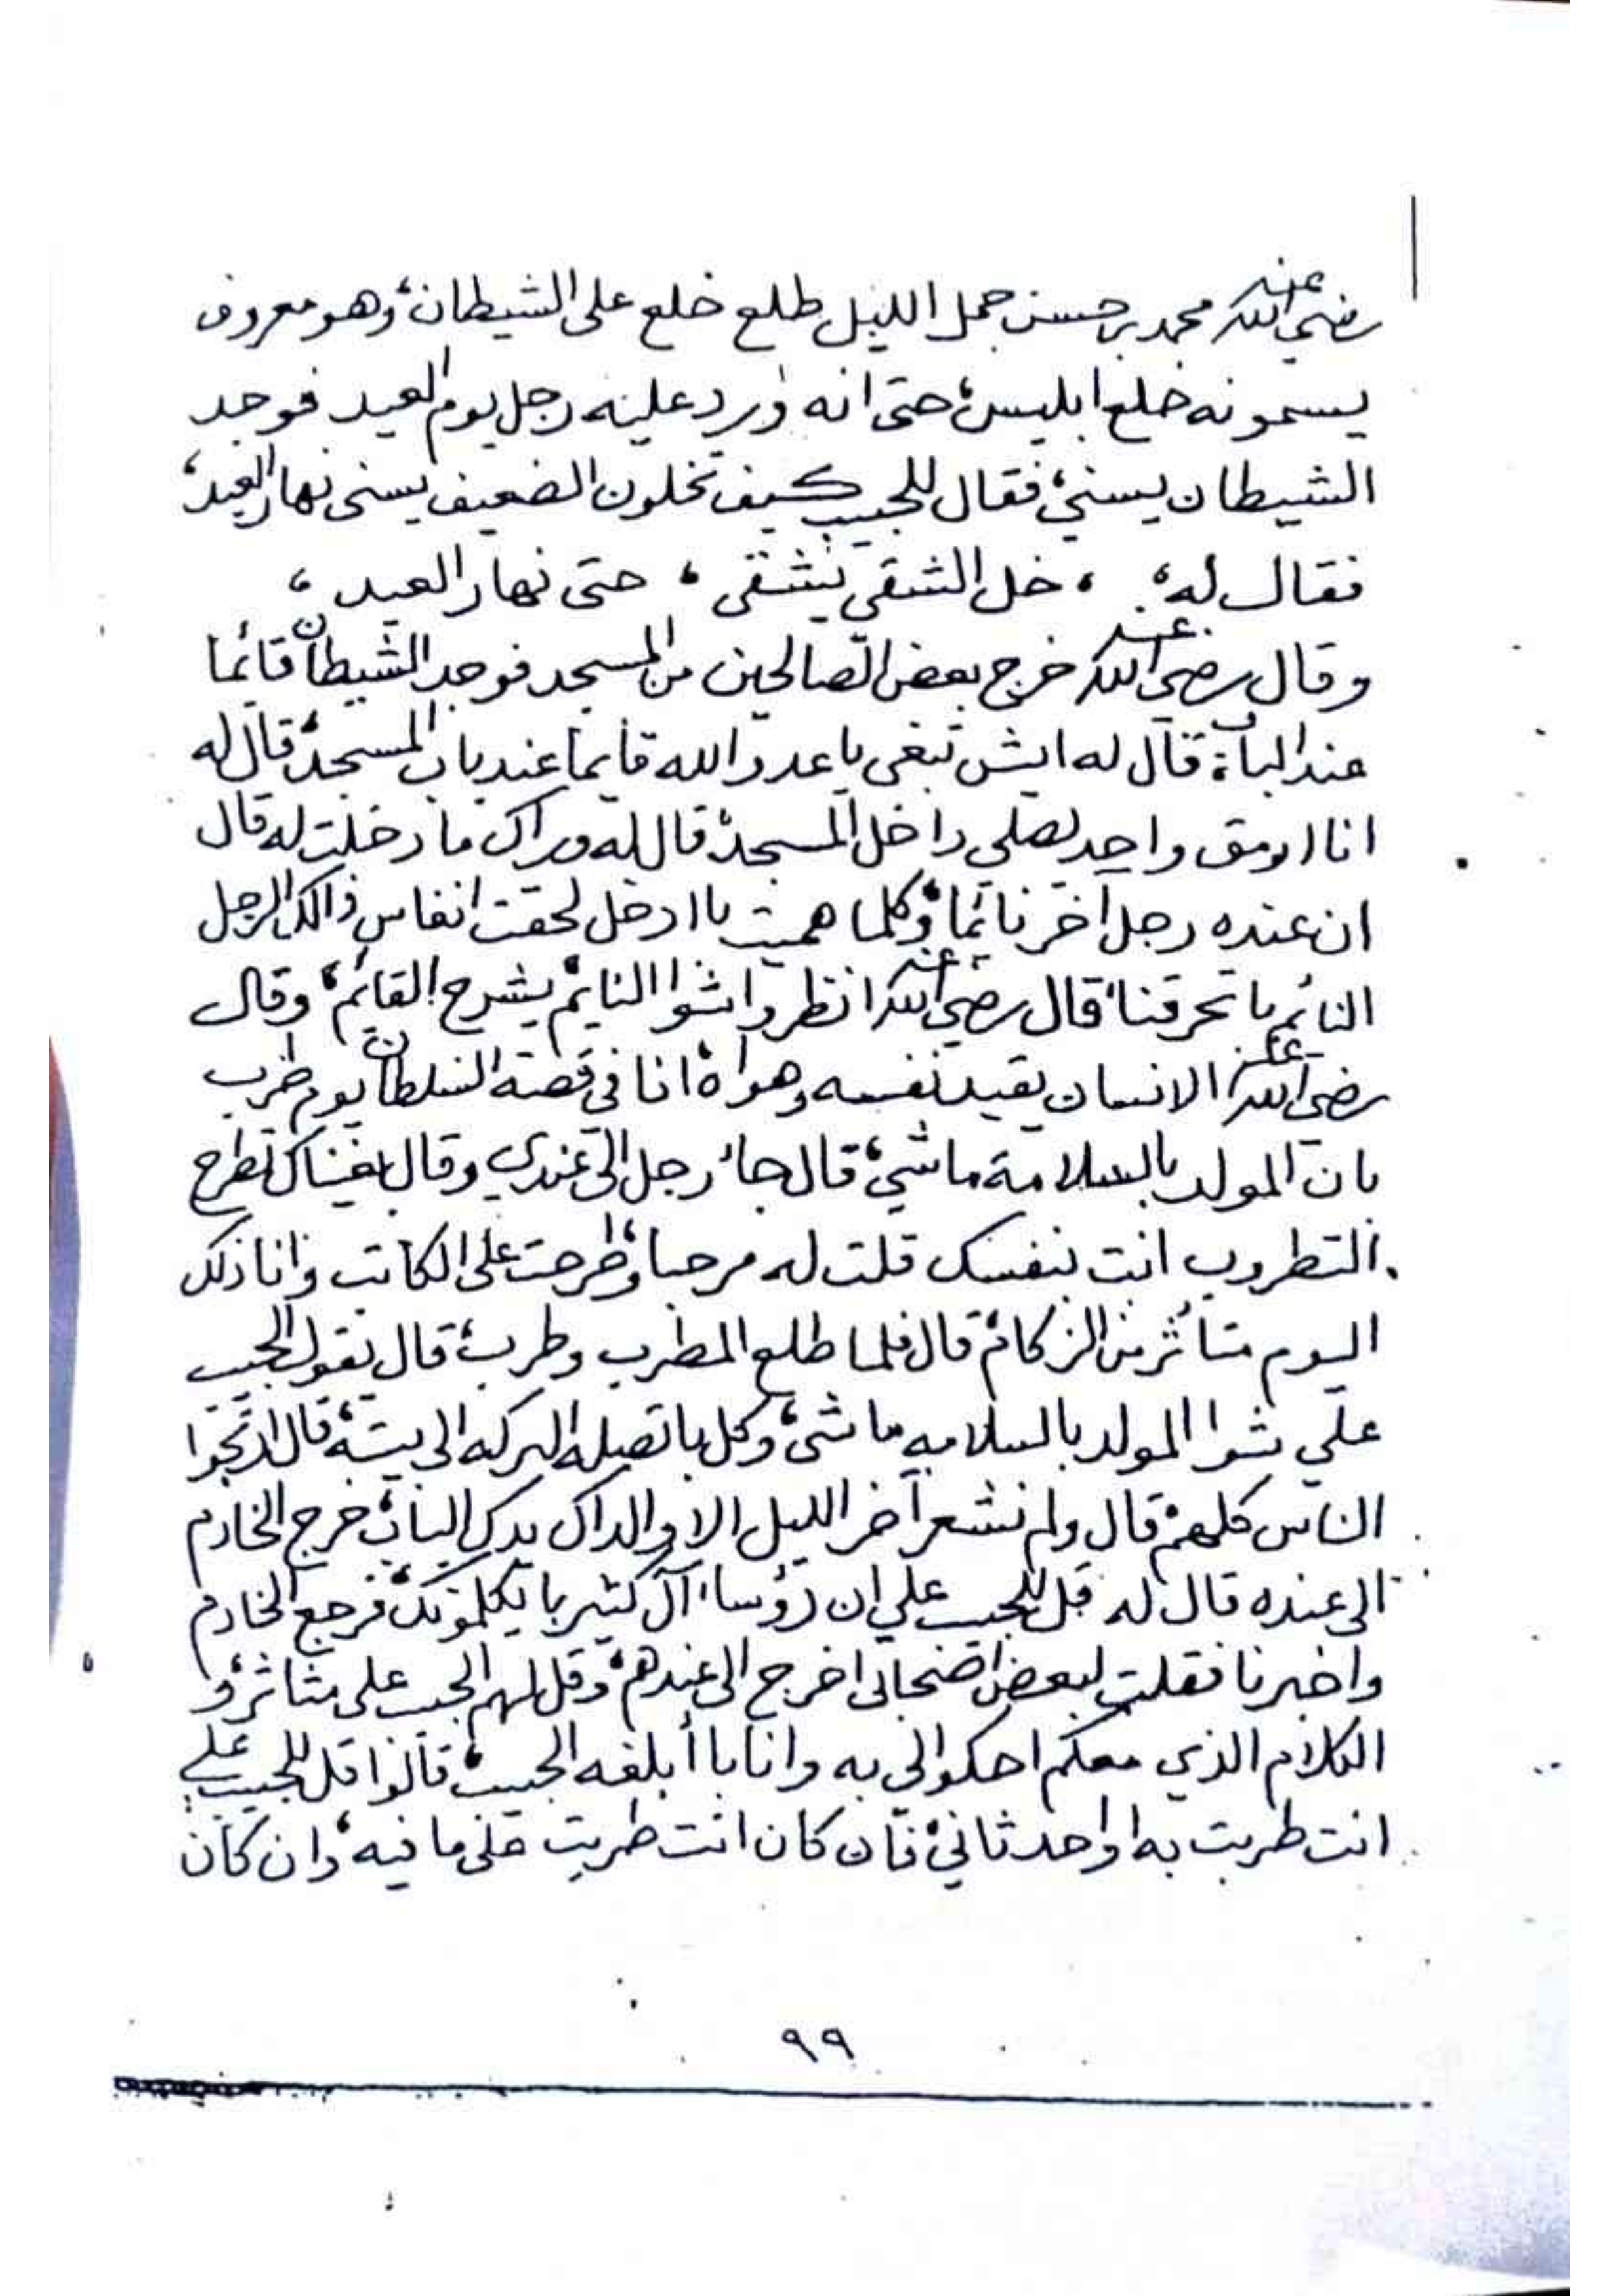 رضي الله عنه محمد بن حسن جمل الليل طلع خلع على الشيطان، وهو معروف
يسمونه خلع ابليس، حتى انه ورد عليه رجل يوم العيد فوجد
الشيطان يسني، فقال للحبيب كيف تخلون الضعيف يسنى نهار العيد،
فقال له، ، خل الشقي يشقى ، حتى نهار العيد ،
وقال رضي الله عنه خرج بعض الصالحين من المسجد فوجد الشيطان قائما
عند الباب، قال له ايش تبغى يا عدو الله قايما عند باب المسجد، قال له
انا ارمق واحد يصلي داخل المسجد، قال له وراك ما دخلت له قال
ان عنده رجل آخر نائما، وكلما هميت باادخل لحقت انفاس ذالك الرجل
النائم باتحرقنا، قال رضي الله عنه انظروا شوا النايم يشرح القائم، وقال
رضي الله عنه الانسان يقيد نفسه وهواه، انا في قصة السلطان يوم طرب
بان المولد بالسلامة ماشي، قال جاء رجل الى عندي وقال بغيناك تطرح
التطروب انت بنفسك قلت له مرحبا، وطرحت على الكاتب وانا ذلك
اليوم متأثر من الزكام، قال فلما طلع المطرب وطرب، قال يقول الحبيب
علي شوا المولد بالسلامه ماشى، وكل باتصله البركه الى بيته، قال ارتجوا
الناس كلهم، قال ولم نشعر آخر الليل الا والداك يدك الباب، خرج الخادم
الى عنده قال له قل للحبيب علي ان رؤساء آل كثير با يكلمونك، فرجع الخادم
واخبرنا فقلت لبعض اصحابى اخرج الى عندهم، وقل لهم الحبيب على متاثر، و
الكلام الذي معكم احكوا لى به وانا باأبلغه الحبيب، قالوا قل للحبيب علي
انت طربت به او احد ثاني، فان كان انت طربت على ما فيه، وان كان
٩٩